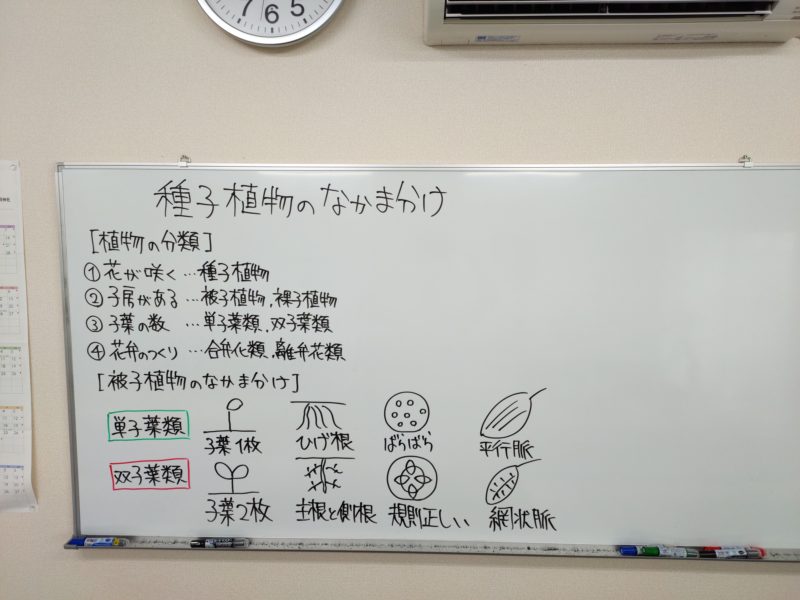 7 6 5
種子植物のなかまわけ
[植物の分類]
①花が咲く…種子植物
②子房がある…被子植物、裸子植物
③子葉の数…単子葉類、双子葉類
④花弁のつくり…合弁花類、離弁花類
[被子植物のなかまわけ]
単子葉類
子葉1枚 ひげ根 ばらばら 平行脈
双子葉類
子葉2枚 主根と側根 規則正しい 網状脈